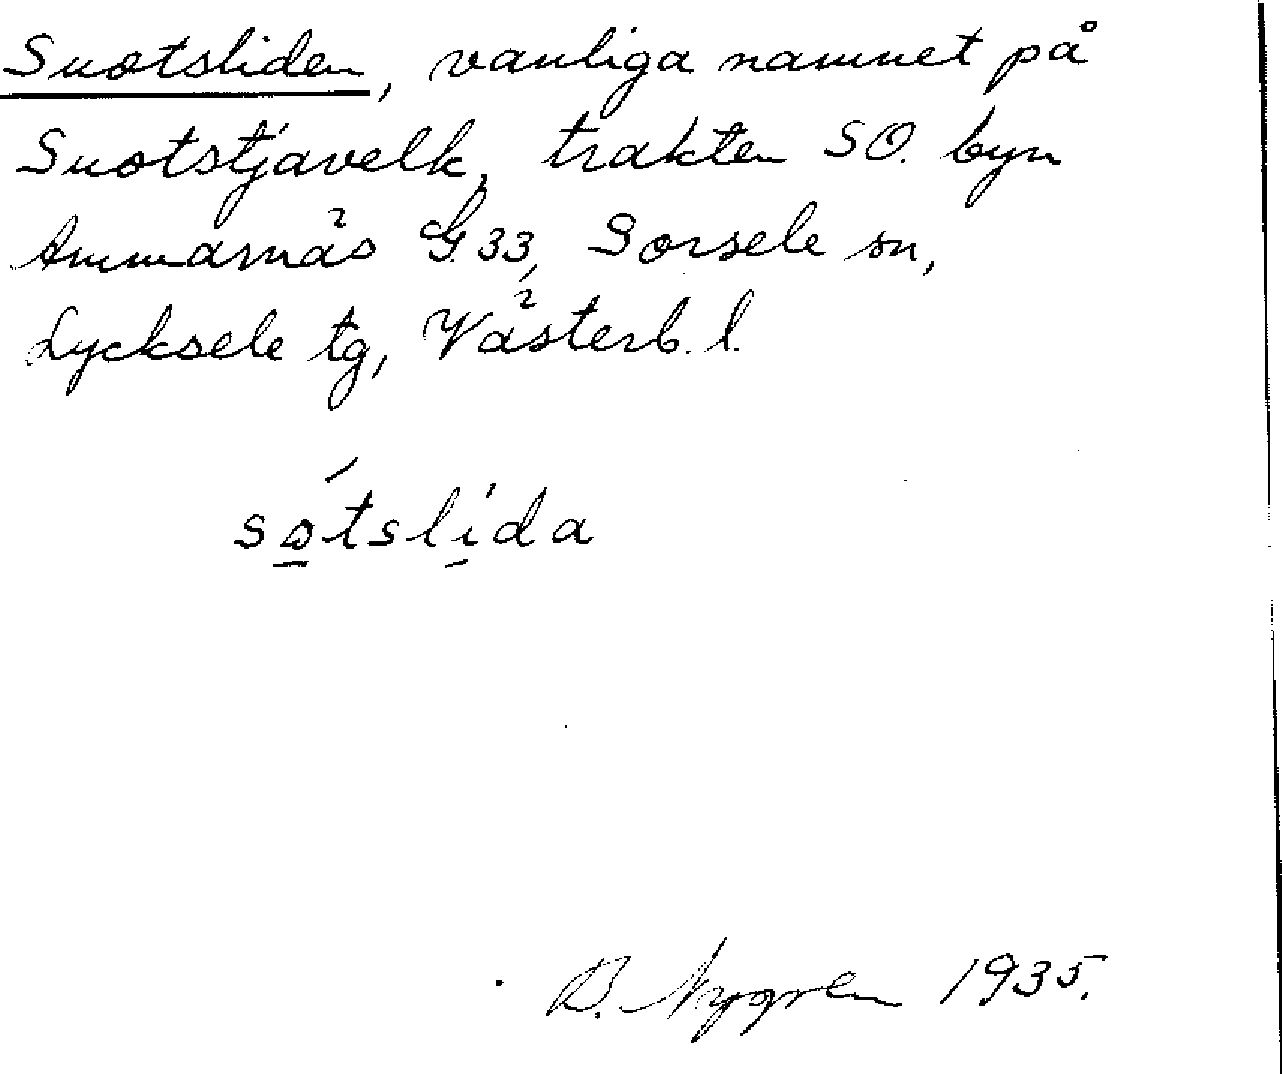 Suotsliden, vanliga namnet på
Suotstjavelk, trakten SO. byn
Ammarnäs G 33, Sorsele sn,
Lycksele tg, Västerb. l.
só̱tslí̱da
B. Nygren 1935.